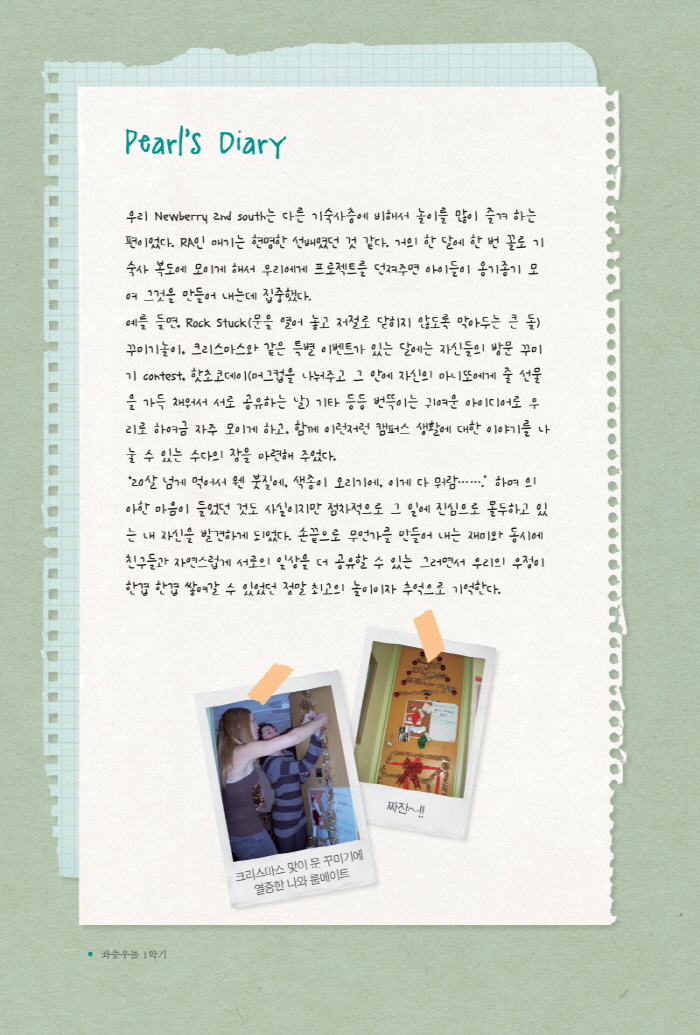 Pearl's Diary
우리 Newberry 2nd south는 다른 기숙사층에 비해서 놀이를 많이 즐겨 하는
편이었다. RA인 매기는 현명한 선배였던 것 같다. 거의 한 달에 한 번 꼴로 기
숙사 복도에 모이게 해서 우리에게 프로젝트를 던져주면 아이들이 옹기종기 모
여 그것을 만들어 내는데 집중했다.
예를 들면, Rock Stuck(문을 열어 놓고 저절로 닫히지 않도록 막아두는 큰 돌)
꾸미기놀이, 크리스마스와 같은 특별 이벤트가 있는 달에는 자신들의 방문 꾸미
기 contest, 핫초코데이(머그컵을 나눠주고 그 안에 자신의 마니또에게 줄 선물
을 가득 채워서 서로 공유하는 날) 기타 등등 번뜩이는 귀여운 아이디어로 우
리로 하여금 자주 모이게 하고, 함께 이런저런 캠퍼스 생활에 대한 이야기를 나
눌 수 있는 수다의 장을 마련해 주었다.
'20살 넘게 먹어서 웬 붓질에, 색종이 오리기에, 이게 다 뭐람…….' 하며 의
아한 마음이 들었던 것도 사실이지만 점차적으로 그 일에 진심으로 몰두하고 있
는 내 자신을 발견하게 되었다. 손끝으로 무언가를 만들어 내는 재미와 동시에
친구들과 자연스럽게 서로의 일상을 더 공유할 수 있는 그러면서 우리의 우정이
한겹 한겹 쌓여갈 수 있었던 정말 최고의 놀이이자 추억으로 기억한다.
짜잔~!!
크리스마스 맞이 문 꾸미기에
열중한 나와 룸메이트
좌충우돌 1학기